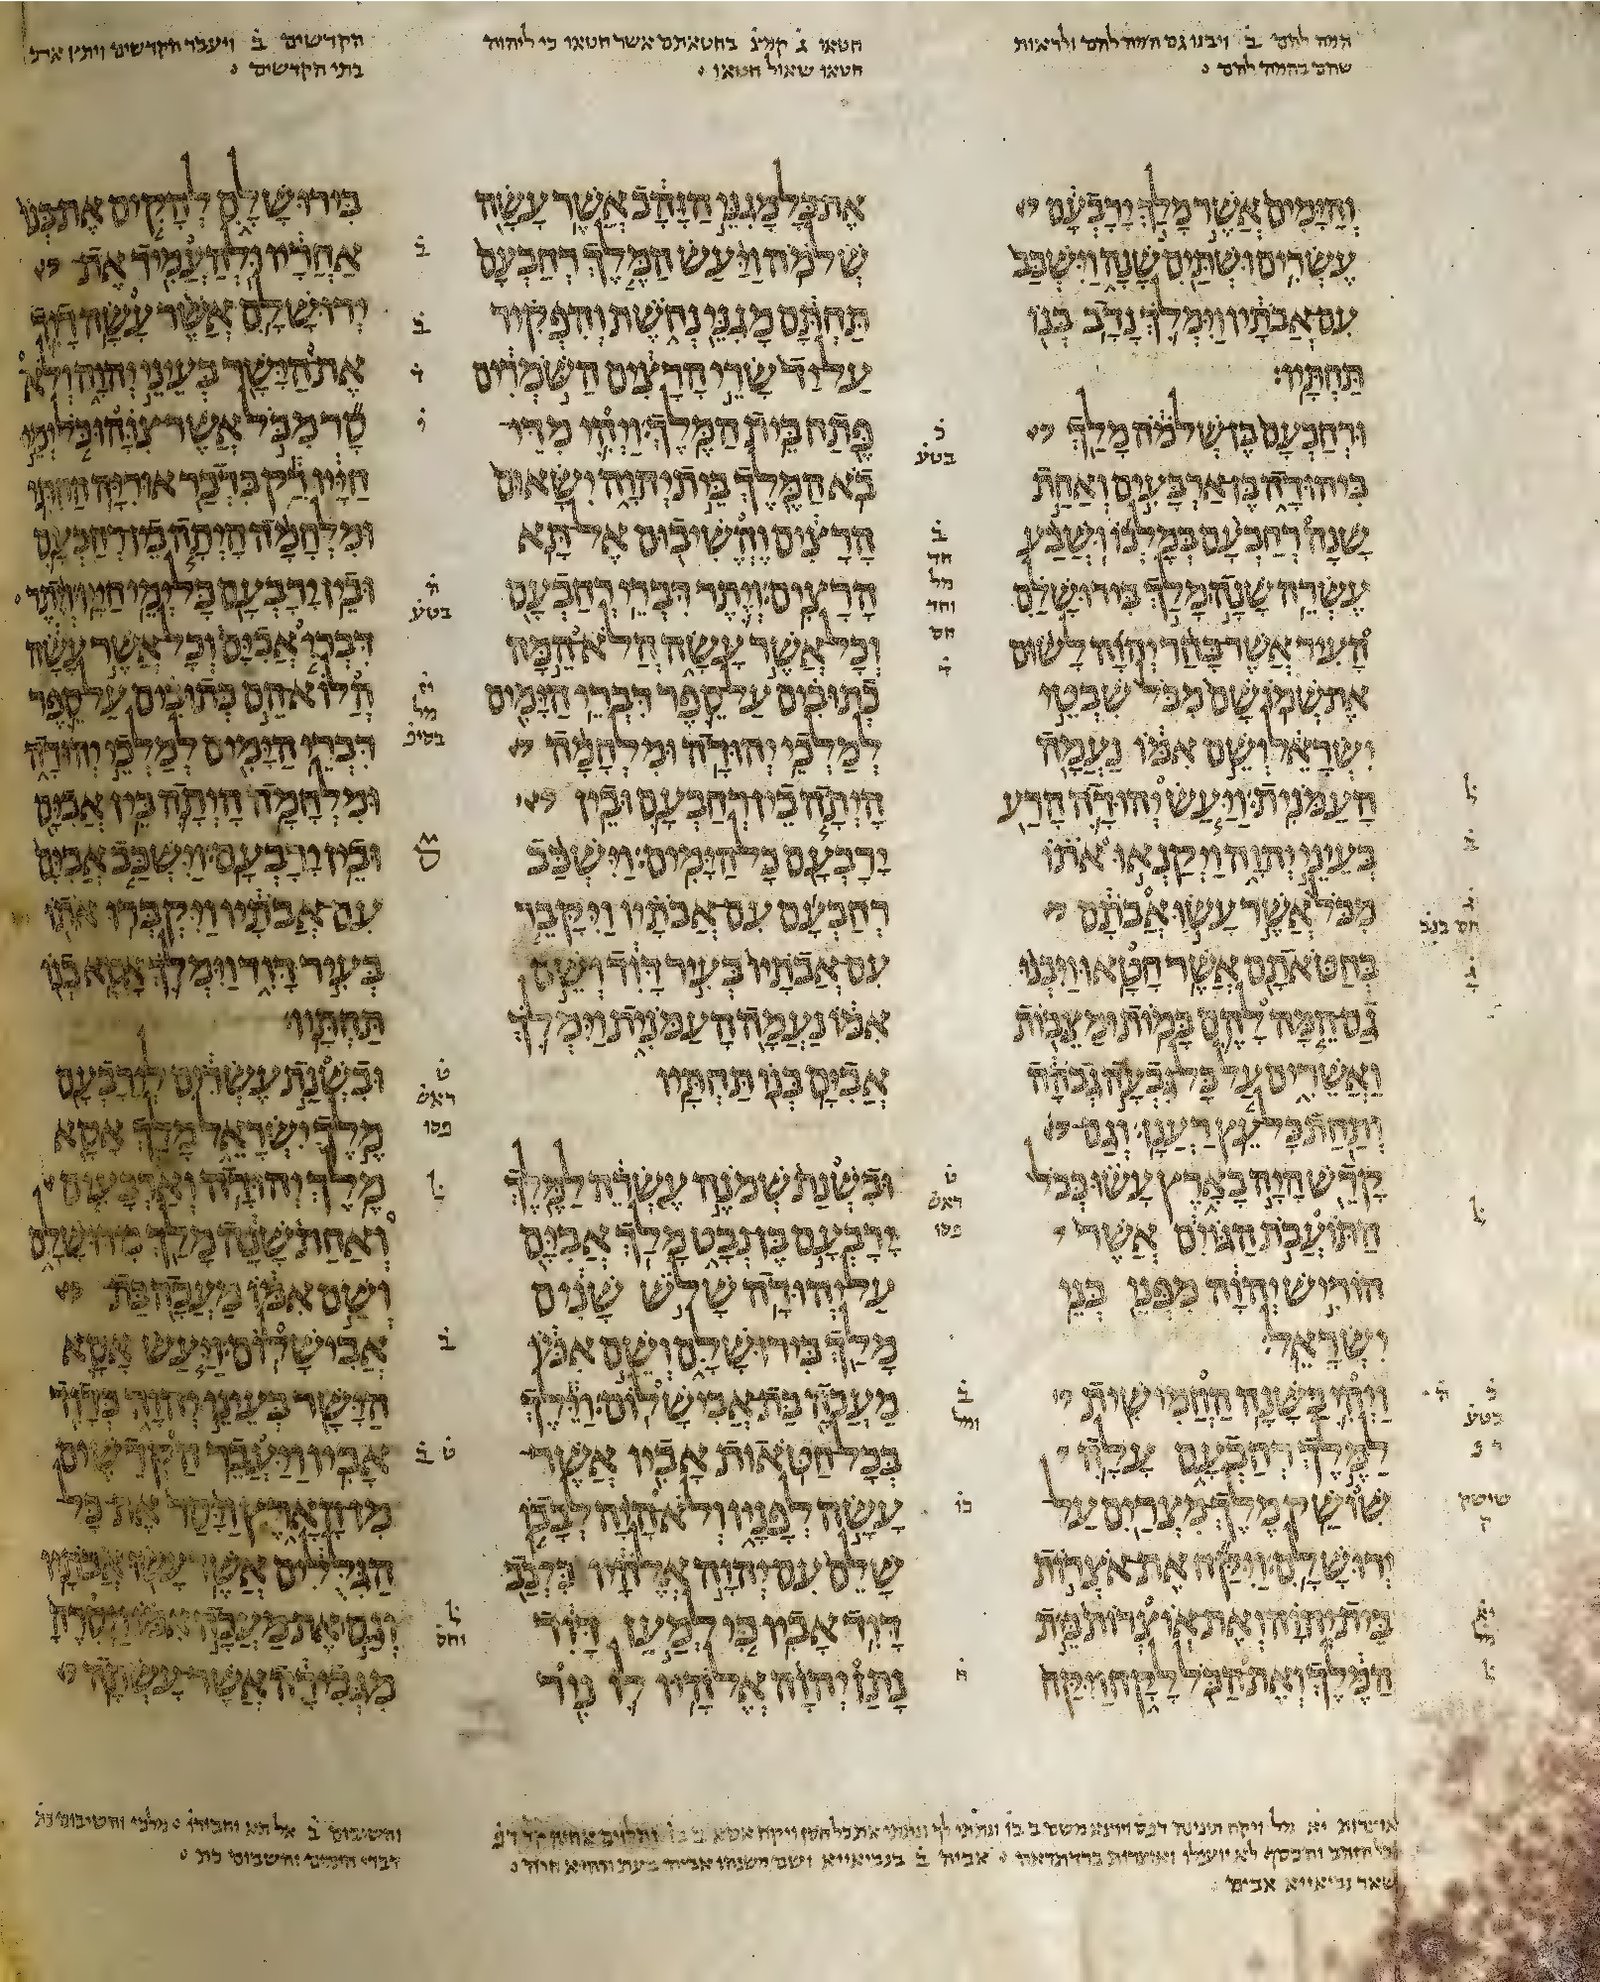 המה להם ב ויבנו גם המה להם ולראות
שהם בהמה להם
חטאו ג קמצ בחטאתם אשר חטאו כי ליהוה
חטאו שאול חטאו
הקדשים ב ויעבר הקדשים ויתץ את
בתי הקדשים
וְהַיָּמִים אֲשֶׁר מָלַךְ יָרָבְעָם
עֶשְׂרִים וּשְׁתַּיִם שָׁנָה וַיִּשְׁכַּב
עִם אֲבֹתָיו וַיִּמְלֹךְ נָדָב בְּנוֹ
תַּחְתָּיו׃
וּרְחַבְעָם בֶּן שְׁלֹמֹה מָלַךְ
בִּיהוּדָה בֶּן אַרְבָּעִים וְאַחַת
שָׁנָה רְחַבְעָם בְּמָלְכוֹ וּשְׁבַע
עֶשְׂרֵה שָׁנָה מָלַךְ בִּירוּשָׁלִַם
הָעִיר אֲשֶׁר בָּחַר יְהוָה לָשׂוּם
אֶת שְׁמוֹ שָׁם מִכֹּל שִׁבְטֵי
יִשְׂרָאֵל וְשֵׁם אִמּוֹ נַעֲמָה
הָעַמֹּנִית׃ וַיַּעַשׂ יְהוּדָה הָרַע
בְּעֵינֵי יְהוָה וַיְקַנְאוּ אֹתוֹ
מִכֹּל אֲשֶׁר עָשׂוּ אֲבֹתָם
בְּחַטֹּאתָם אֲשֶׁר חָטָאוּ׃ וַיִּבְנוּ
גַם הֵמָּה לָהֶם בָּמוֹת וּמַצֵּבוֹת
וַאֲשֵׁרִים עַל כָּל גִּבְעָה גְבֹהָה
וְתַחַת כָּל עֵץ רַעֲנָן׃ וְגַם
קָדֵשׁ הָיָה בָאָרֶץ עָשׂוּ כְּכֹל
הַתּוֹעֲבֹת הַגּוֹיִם אֲשֶׁר
הוֹרִישׁ יְהוָה מִפְּנֵי בְּנֵי
יִשְׂרָאֵל׃
וַיְהִי בַּשָּׁנָה הַחֲמִישִׁית
לַמֶּלֶךְ רְחַבְעָם עָלָה
שׁוּשַׁק מֶלֶךְ מִצְרַיִם עַל
יְרוּשָׁלִָם׃ וַיִּקַּח אֶת אֹצְרוֹת
בֵּית יְהוָה וְאֶת אוֹצְרוֹת בֵּית
הַמֶּלֶךְ וְאֶת הַכֹּל לָקָח וַיִּקַּח
ל
ב
ג
חס בנב
ג
ל
כ ה
בטע
שישק
ק
יא
מל
ל
אֶת כָּל מָגִנֵּי הַזָּהָב אֲשֶׁר עָשָׂה
שְׁלֹמֹה׃ וַיַּעַשׂ הַמֶּלֶךְ רְחַבְעָם
תַּחְתָּם מָגִנֵּי נְחֹשֶׁת וְהִפְקִיד
עַל יַד שָׂרֵי הָרָצִים הַשֹּׁמְרִים
פֶּתַח בֵּית הַמֶּלֶךְ׃ וַיְהִי מִדֵּי
בֹא הַמֶּלֶךְ בֵּית יְהוָה יִשָּׂאוּם
הָרָצִים וֶהֱשִׁיבוּם אֶל תָּא
הָרָצִים׃ וְיֶתֶר דִּבְרֵי רְחַבְעָם
וְכָל אֲשֶׁר עָשָׂה הֲלֹא הֵמָּה
כְתוּבִים עַל סֵפֶר דִּבְרֵי הַיָּמִים
לְמַלְכֵי יְהוּדָה׃ וּמִלְחָמָה
הָיְתָה בֵין רְחַבְעָם וּבֵין
יָרָבְעָם כָּל הַיָּמִים׃ וַיִּשְׁכַּב
רְחַבְעָם עִם אֲבֹתָיו וַיִּקָּבֵר
עִם אֲבֹתָיו בְּעִיר דָּוִד וְשֵׁם
אִמּוֹ נַעֲמָה הָעַמֹּנִית וַיִּמְלֹךְ
אֲבִיָּם בְּנוֹ תַּחְתָּיו
וּבִשְׁנַת שְׁמֹנֶה עֶשְׂרֵה לַמֶּלֶךְ
יָרָבְעָם בֶּן נְבָט מָלַךְ אֲבִיָּם
עַל יְהוּדָה׃ שָׁלֹשׁ שָׁנִים
מָלַךְ בִּירוּשָׁלִָם וְשֵׁם אִמּוֹ
מַעֲכָה בַּת אֲבִישָׁלוֹם׃ וַיֵּלֶךְ
בְּכָל חַטֹּאות אָבִיו אֲשֶׁר
עָשָׂה לְפָנָיו וְלֹא הָיָה לְבָבוֹ
שָׁלֵם עִם יְהוָה אֱלֹהָיו כִּלְבַב
דָּוִד אָבִיו׃ כִּי לְמַעַן דָּוִד
נָתַן יְהוָה אֱלֹהָיו לוֹ נִיר
כ
בטע
ב
חד
מל
וחד
חס
ט
ראש
פסו
ב
ומל
כו
בִּירוּשָׁלִָם לְהָקִים אֶת בְּנוֹ
אַחֲרָיו וּלְהַעֲמִיד אֶת
יְרוּשָׁלִָם׃ אֲשֶׁר עָשָׂה דָוִד
אֶת הַיָּשָׁר בְּעֵינֵי יְהוָה וְלֹא
סָר מִכֹּל אֲשֶׁר צִוָּהוּ כֹּל יְמֵי
חַיָּיו רַק בִּדְבַר אוּרִיָּה הַחִתִּי׃
וּמִלְחָמָה הָיְתָה בֵין רְחַבְעָם
וּבֵין יָרָבְעָם כָּל יְמֵי חַיָּיו׃ וְיֶתֶר
דִּבְרֵי אֲבִיָּם וְכָל אֲשֶׁר עָשָׂה
הֲלוֹא הֵם כְּתוּבִים עַל סֵפֶר
דִּבְרֵי הַיָּמִים לְמַלְכֵי יְהוּדָה
וּמִלְחָמָה הָיְתָה בֵּין אֲבִיָּם
וּבֵין יָרָבְעָם׃ וַיִּשְׁכַּב אֲבִיָּם
עִם אֲבֹתָיו וַיִּקְבְּרוּ אֹתוֹ
בְּעִיר דָּוִד וַיִּמְלֹךְ אָסָא בְנוֹ
תַּחְתָּיו׃
וּבִשְׁנַת עֶשְׂרִים לְיָרָבְעָם
מֶלֶךְ יִשְׂרָאֵל מָלַךְ אָסָא
מֶלֶךְ יְהוּדָה׃ וְאַרְבָּעִים
וְאַחַת שָׁנָה מָלַךְ בִּירוּשָׁלִָם
וְשֵׁם אִמּוֹ מַעֲכָה בַּת
אֲבִישָׁלוֹם׃ וַיַּעַשׂ אָסָא
הַיָּשָׁר בְּעֵינֵי יְהוָה כְּדָוִד
אָבִיו׃ וַיַּעֲבֵר הַקְּדֵשִׁים
מִן הָאָרֶץ וַיָּסַר אֶת כָּל
הַגִּלֻּלִים אֲשֶׁר עָשׂוּ אֲבֹתָיו׃
וְגַם אֶת מַעֲכָה אִמּוֹ וַיְסִרֶהָ
מִגְּבִירָה אֲשֶׁר עָשְׂתָה
ב
ב
ד
י
ה
בטע
יח
מל
בסיפ
ט
ראש
פסו
ל
ב
ט ב
ל
וחס
אוצרות יא מל
לא יועילו ואוצרות
אביה ב בנביאייא ושם משנהו אביה בעת ההיא חלה
שאר נביאייא אבים
והשיבום ב אל תא וחבירו מלכי והשיבום
דברי הימים והשבום כת